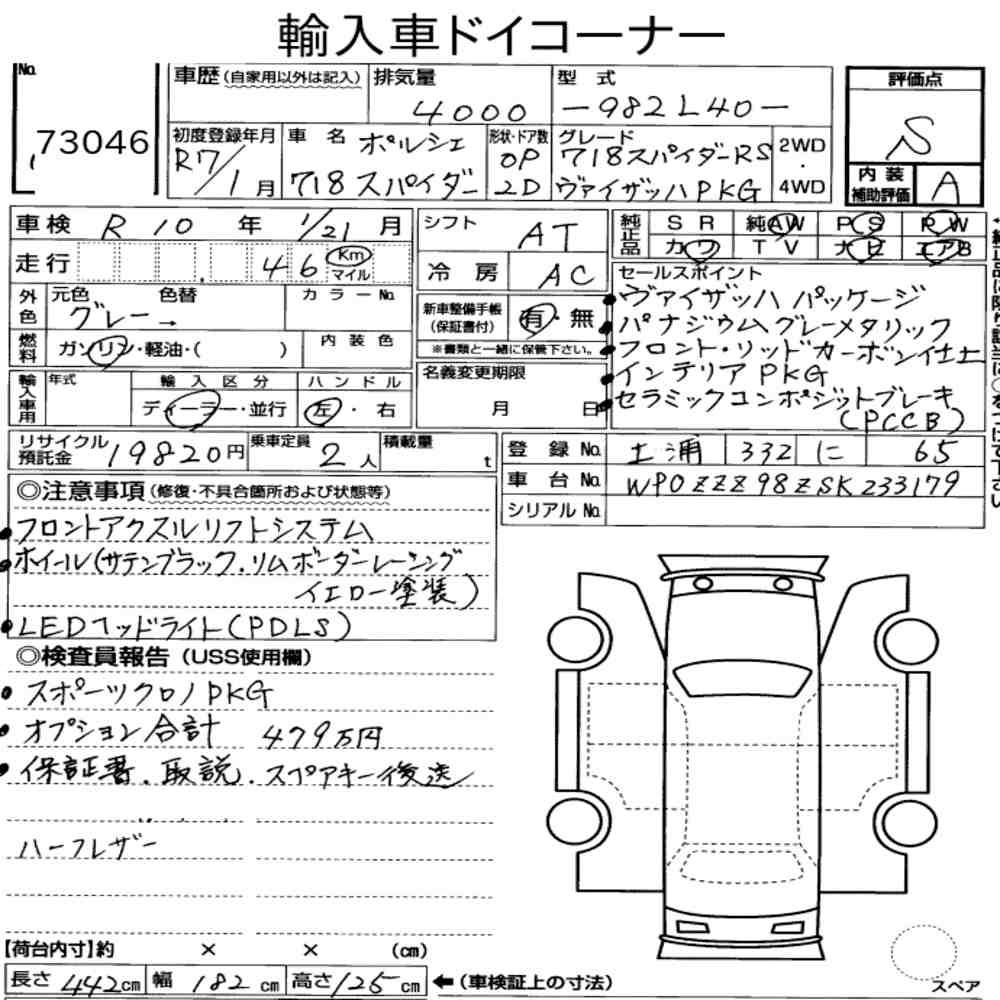 輸入車ドイコーナー
No.
73046
車歴(自家用以外は記入)
排気量
4000
型式
-982L40-
評価点
S
初度登録年月
R7/1月
車名
ポルシェ
718スパイダー
形状・ドア数
OP
2D
グレード
718スパイダーRS
ヴァイザッハPKG
2WD
・
4WD
内装
補助評価
A
車検 R10年 1/21月
シフト
AT
純正品
SR 純AW PS RW
カワ TV ナビ エアB
走行 46 Km
マイル
冷房 AC
セールスポイント
ヴァイザッハ パッケージ
バナジウムグレーメタリック
フロント・リッドカーボン仕上
インテリアPKG
セラミックコンポジットブレーキ
(PCCB)
外色
元色 色替 カラーNo.
グレー→
新車整備手帳
(保証書付)
有・無
※書類と一緒に保管下さい。
燃料
ガソリン・軽油・( )
内装色
名義変更期限
月 日
輸入車用
年式
輸入区分
ディーラー・並行
ハンドル
左・右
リサイクル
預託金
19820円
乗車定員
2人
積載量
t
登録No. 土浦 332 に 65
車台No. WP0ZZZ98ZSK233179
シリアルNo.
◎注意事項(修復・不具合箇所および状態等)
フロントアクスルリフトシステム
ホイール(サテンブラック.リムボーダーレーシング
イエロー塗装)
LEDヘッドライト(PDLS)
◎検査員報告(USS使用欄)
スポーツクロノPKG
オプション合計 479万円
保証書.取説.スペアキー後送
ハーフレザー
【荷台内寸】約 × × (cm)
長さ442cm 幅182cm 高さ125cm ←(車検証上の寸法)
スペア